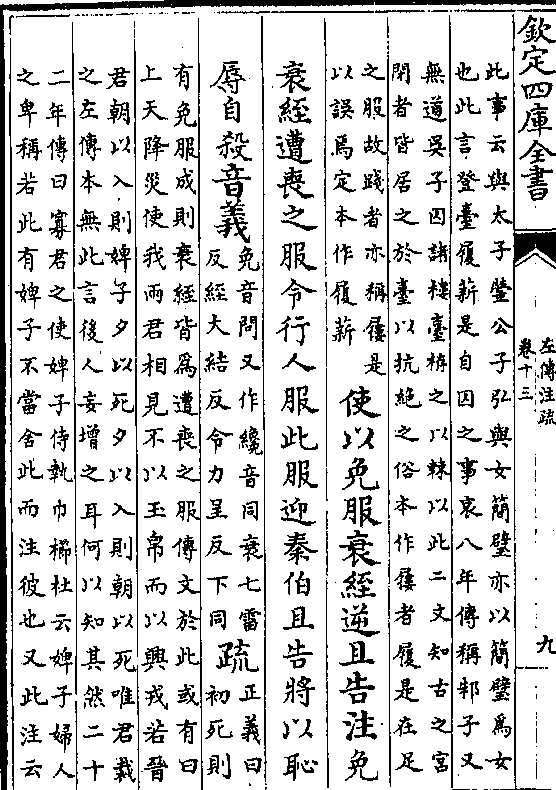 欽定四庫全書
左傳注疏
卷十三
九
此事云與太子罃公子弘與女簡璧亦以簡璧爲女
也此言登臺履薪是自囚之事哀八年傳稱邾子又
無道吳子囚諸樓臺栫之以棘以此二文知古之宮
閉者皆居之於臺以抗絶之俗本作屨者履是在足
之服故踐者亦稱屨是
以誤爲定本作履薪
使以免服衰絰逆且告注免
衰絰遭喪之服令行人服此服迎秦伯且告將以恥
辱自殺音義
免音問又作絻音同衰七雷
反絰大結反令力呈反下同
疏
正義曰
初死則
有免服成則衰絰皆爲遭喪之服傳文於此或有曰
上天降災使我兩君相見不以玉帛而以興戎若晉
君朝以入則婢子夕以死夕以入則朝以死唯君裁
之左傳本無此言後人妄增之耳何以知其然二十
二年傳曰寡君之使婢子侍執巾櫛杜云婢子婦人
之卑稱若此有婢子不當舍此而注彼也又此注云